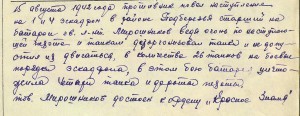 15 августа 1942 года противник повел наступление
на 1 и 4 эскадрон в районе старший на
батареи св. л-нт. Мирошников ведя огонь по наступаю
щей пехоте и танкам дезорганизовал танки и не допу
стил их двигаться, в количестве 28 танков на боевые
порядки эскадрона, в этом бою батарея уничто
жила четыре танка и до роты пехоты
тов. Мирошников достоен к ордену "Красное Знамя"